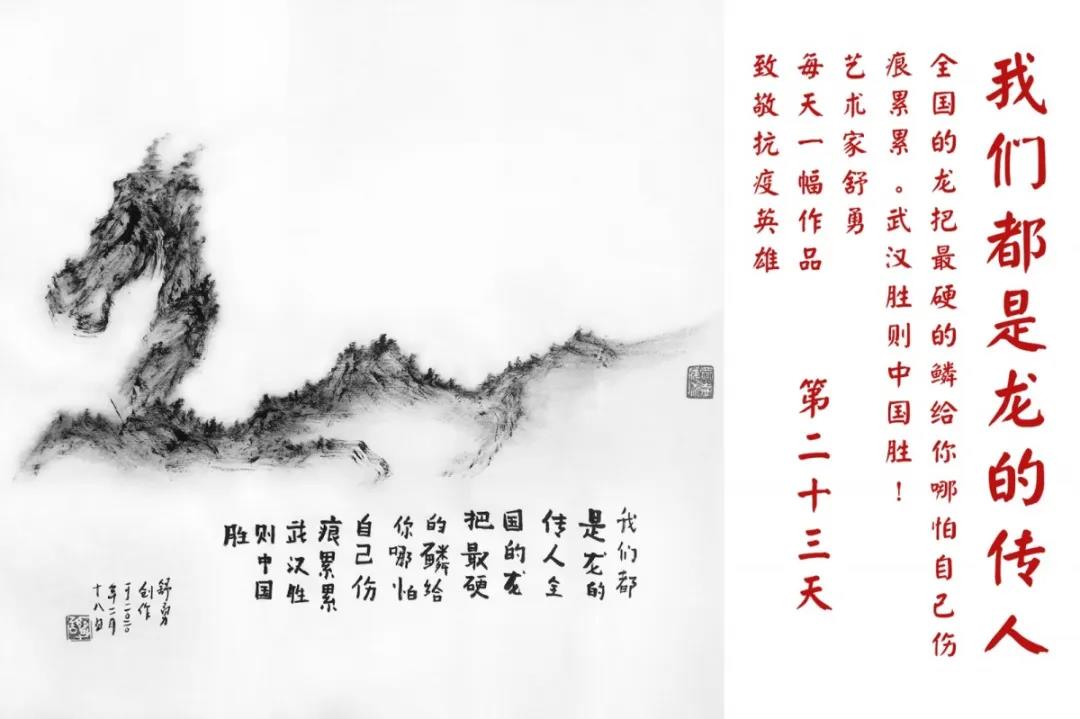 我们都是龙的传人
全国的龙把最硬的鳞给你哪怕自己伤
痕累累。武汉胜则中国胜！
艺术家舒勇
每天一幅作品
致敬抗疫英雄
第二十三天
我们都
是龙的
传人全
国的龙
把最硬
的鳞给
你哪怕
自己伤
痕累累
武汉胜
则中国
胜
舒勇
创作
于二〇二〇
年二月
十八日